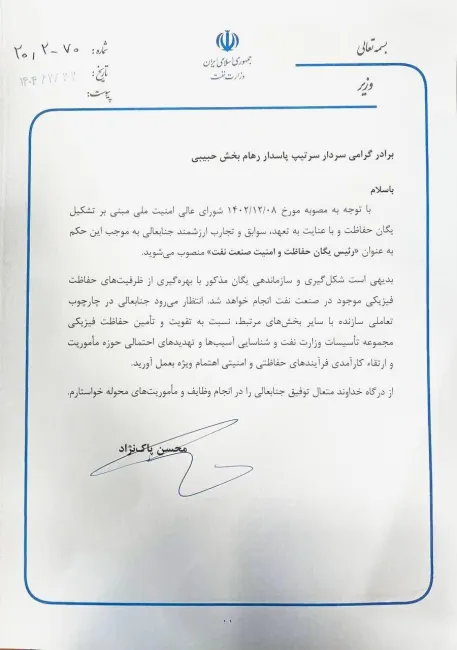 بسمه تعالی
جمهوری اسلامی ایران
وزارت نفت
وزیر
شماره: ۲۰٫۲-۷۰
تاریخ:
پیوست:
برادر گرامی سردار سرتیپ پاسدار رهام بخش حبیبی
باسلام
با توجه به مصوبه مورخ ۱۴۰۲/۱۲/۰۸ شورای عالی امنیت ملی مبنی بر تشکیل
یگان حفاظت و با عنایت به تعهد، سوابق و تجارب ارزشمند جنابعالی به موجب این حکم
به عنوان «رئیس یگان حفاظت و امنیت صنعت نفت» منصوب می‌شوید.
بدیهی است شکل‌گیری و سازماندهی یگان مذکور با بهره‌گیری از ظرفیت‌های حفاظت
فیزیکی موجود در صنعت نفت انجام خواهد شد. انتظار می‌رود جنابعالی در چارچوب
تعاملی سازنده با سایر بخش‌های مرتبط، نسبت به تقویت و تأمین حفاظت فیزیکی
مجموعه تأسیسات وزارت نفت و شناسایی آسیب‌ها و تهدیدهای احتمالی حوزه مأموریت
و ارتقاء کارآمدی فرآیندهای حفاظتی و امنیتی اهتمام ویژه بعمل آورید.
از درگاه خداوند متعال توفیق جنابعالی را در انجام وظایف و مأموریت‌های محوله خواستارم.
محسن پاک‌نژاد